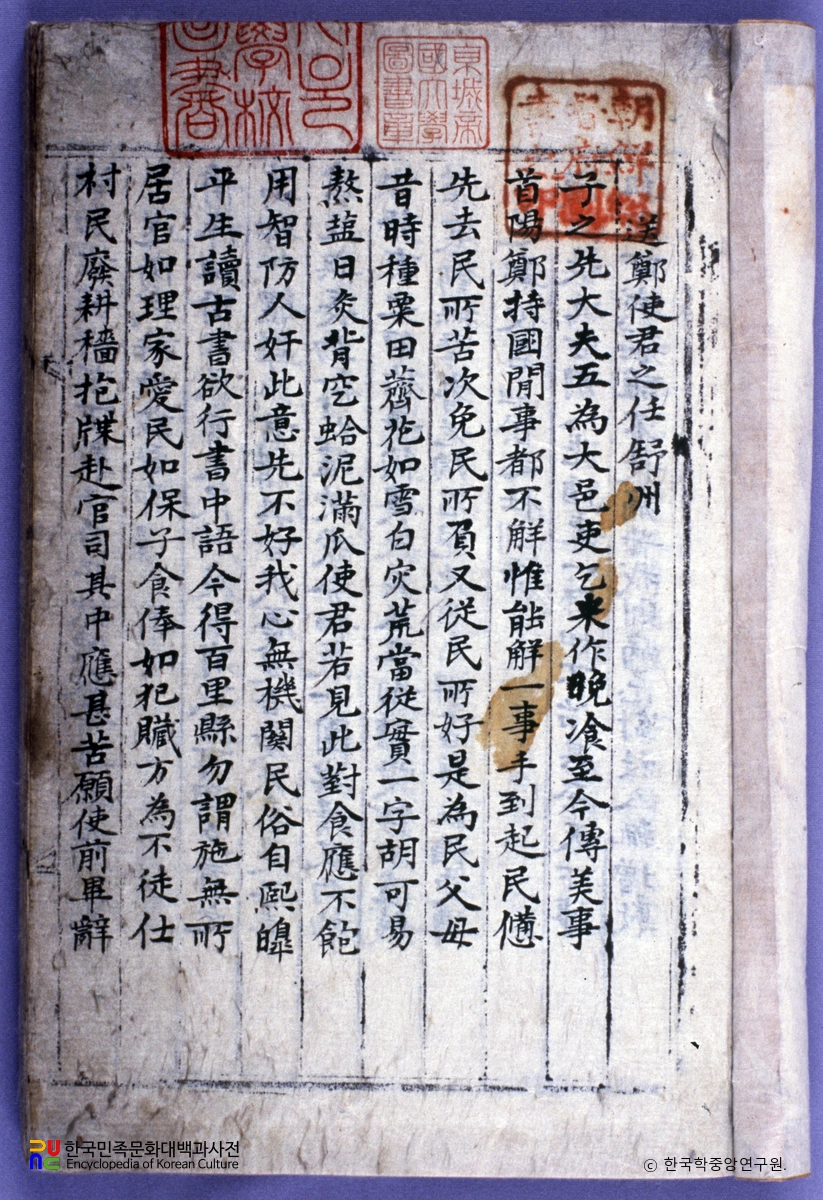 京城帝
國大學
圖書章
送鄭使君之任舒州
子之先大夫五為大邑吏乞来作晚飡至今傳美事
首陽鄭持國閒事都不觧惟能觧一事手到起民憊
先去民所苦次免民所負又從民所好是為民父母
昔時種粟田薺花如雪白灾荒當從實一字胡可易
熬䀋日灸背空蛤泥滿爪使君若見此對食應不飽
用智防人奸此意先不好我心無機関民俗自熙皥
平生讀古書欲行書中語今得百里縣勿謂施無所
居官如理家愛民如保子食俸如犯贓方為不徒仕
村民廢耕穡抱牒赴官司其中應甚苦願使前畢辭
한국민족문화대백과사전
Encyclopedia of Korean Culture
© 한국학중앙연구원.